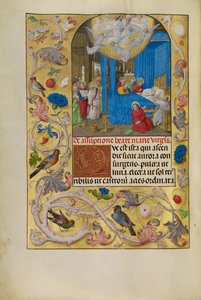 De assumptione beate marie virgis.
Ve est ista que ascen
dit sicut aurora con
surgens. pulcra ut
luna. electa ut sol ter
ribilis ut castrorum acies ordinata.